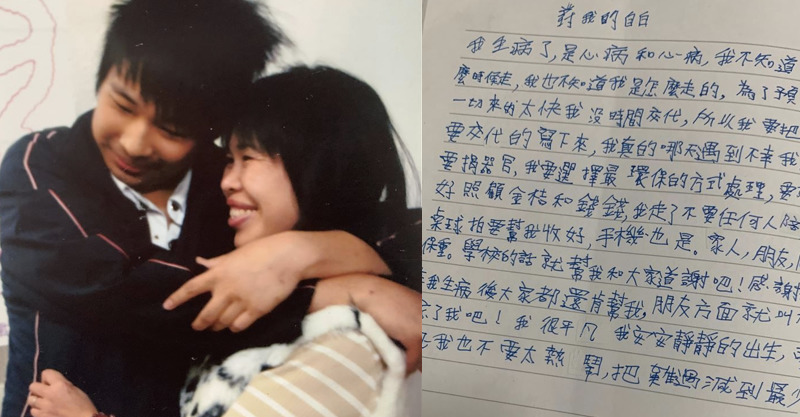 對我的自白
我生病了,是心病和心病,我不知道
麼時候走,我也不知道我是怎麼走的,為了預
一切來的太快我沒時間交代,所以我要把
要交代的寫下來,我真的哪天遇到不幸我
要捐器官,我要選擇最環保的方式處理,要
好照顧金桔和錢錢,我走了不要任何人陪
桌球拍要幫我收好,手機也是。家人,朋友,
保重。學校的話就幫我和大家道謝吧!感謝
我生病後大家都還肯幫我,朋友方面就叫
忘了我吧!我很平凡 我安安靜靜的出生,
我也不要太熱鬧,把難過減到最少